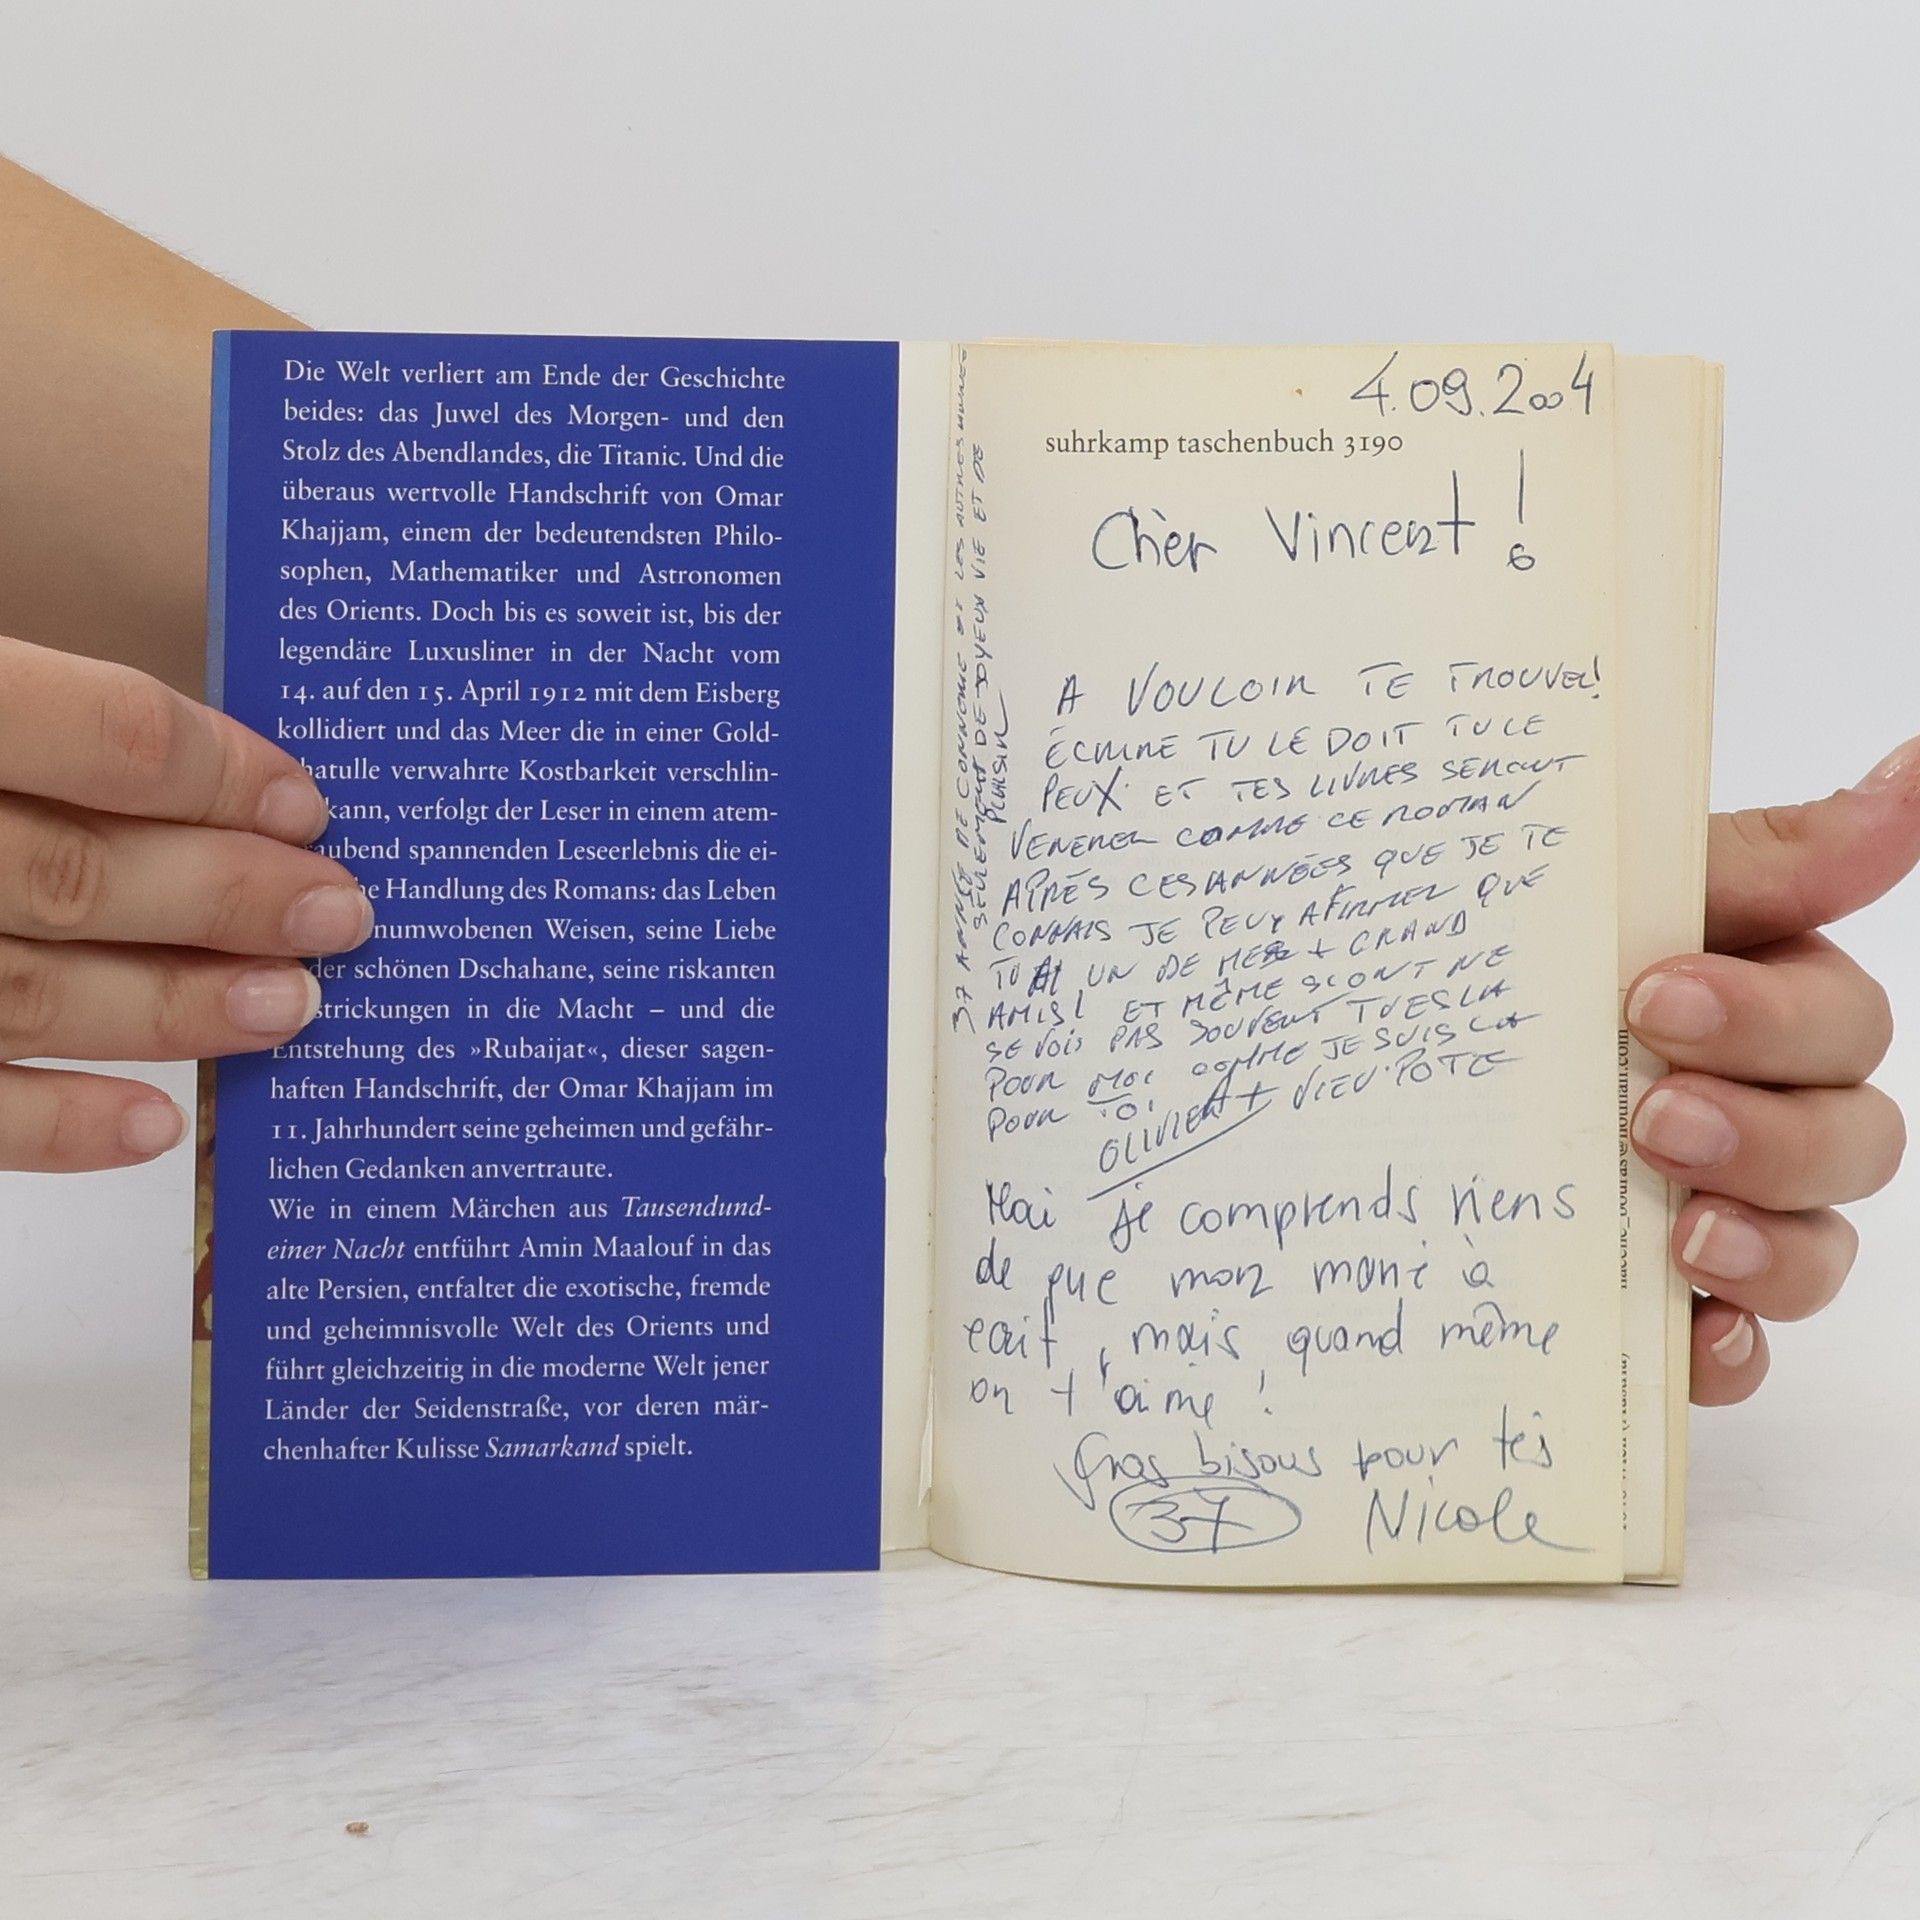 Die Welt verliert am Ende der Geschichte
beides: das Juwel des Morgen- und den
Stolz des Abendlandes, die Titanic. Und die
überaus wertvolle Handschrift von Omar
Khajjam, einem der bedeutendsten Philo-
sophen, Mathematiker und Astronomen
des Orients. Doch bis es soweit ist, bis der
legendäre Luxusliner in der Nacht vom
14. auf den 15. April 1912 mit dem Eisberg
kollidiert und das Meer die in einer Gold-
hatulle verwahrte Kostbarkeit verschlin-
kann, verfolgt der Leser in einem atem-
aubend spannenden Leseerlebnis die ei-
he Handlung des Romans: das Leben
numwobenen Weisen, seine Liebe
der schönen Dschahane, seine riskanten
strickungen in die Macht – und die
Entstehung des »Rubaijat«, dieser sagen-
haften Handschrift, der Omar Khajjam im
11. Jahrhundert seine geheimen und gefähr-
lichen Gedanken anvertraute.
Wie in einem Märchen aus Tausendund-
einer Nacht entführt Amin Maalouf in das
alte Persien, entfaltet die exotische, fremde
und geheimnisvolle Welt des Orients und
führt gleichzeitig in die moderne Welt jener
Länder der Seidenstraße, vor deren mär-
chenhafter Kulisse Samarkand spielt.
4.09.2004
suhrkamp taschenbuch 3190
Chèr Vincent !
A VOULOIR TE TROUVER!
ÉCRIRE TU LE DOIT TU LE
PEUX ET TES LIVRES SERONT
VENERER COMME CE ROMAN
APRÈS CES ANNÉES QUE JE TE
CONNAIS JE PEUX AFIRMER QUE
TU UN DE MES + GRAND
AMIS! ET MÊME SI ONT NE
SE VOIS PAS SOUVENT TU ES LA
POUR MOI COMME JE SUIS LA
POUR TOI. VIEU POTE
OLIVIER
Moi je comprends riens
de que mon marie à
ecrit, mais quand même
on t'aime !
Gros bisous pour tes
37 Nicole
37 ANNÉE DE CONNERIE ET LES AUTRES
SEULEMENT DE JOYEUX VIE ET DE
PLAISIR